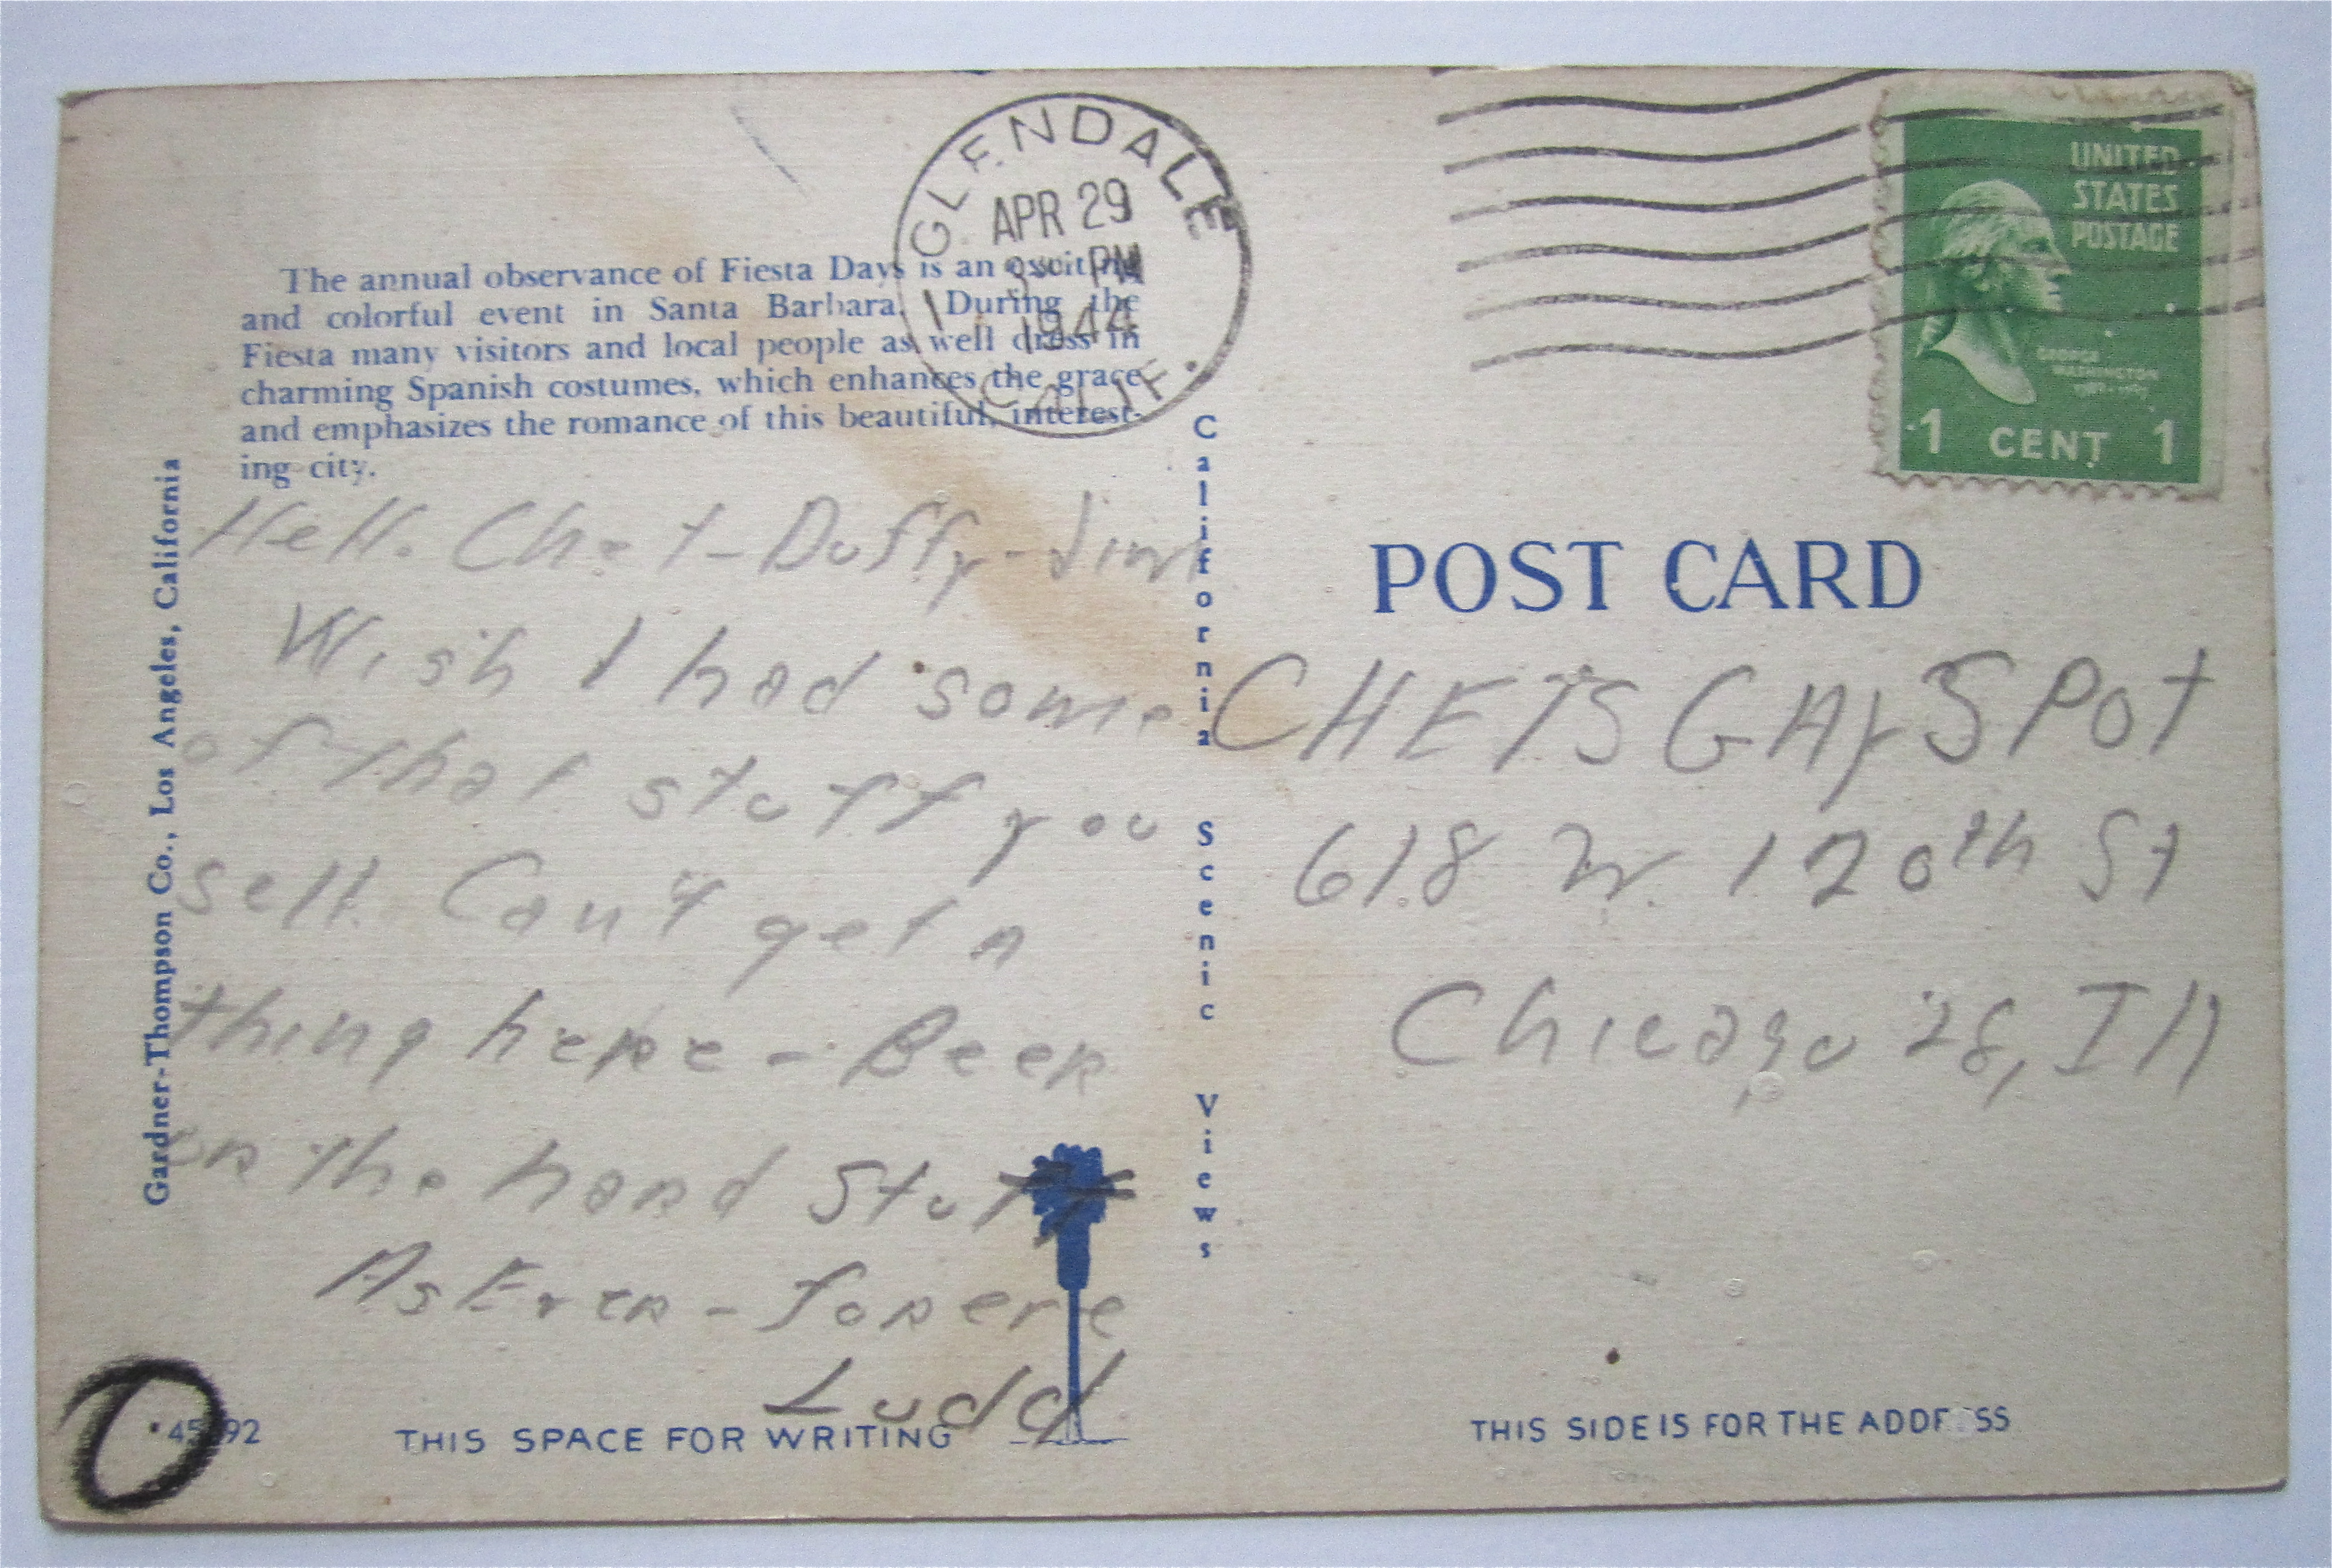 GLENDALE
APR 29
PM
1944
CALIF.
UNITED
STATES
POSTAGE
GEORGE
WASHINGTON
1 CENT 1
The annual observance of Fiesta Days is an exciting
and colorful event in Santa Barbara. During the
Fiesta many visitors and local people as well dress in
charming Spanish costumes, which enhances the grace
and emphasizes the romance of this beautiful, interest-
ing city.
Gardner-Thompson Co., Los Angeles, California
Hello Chet-Duffy-Jim
Wish I had some
of that stuff you
sell Can't get a
thing here - Beer
or the hard stuff
As Ever -
Ludd
California Scenic Views
POST CARD
CHETS GAY SPOT
618 W. 120th St
Chicago 28, Ill
THIS SPACE FOR WRITING
THIS SIDE IS FOR THE ADDRESS